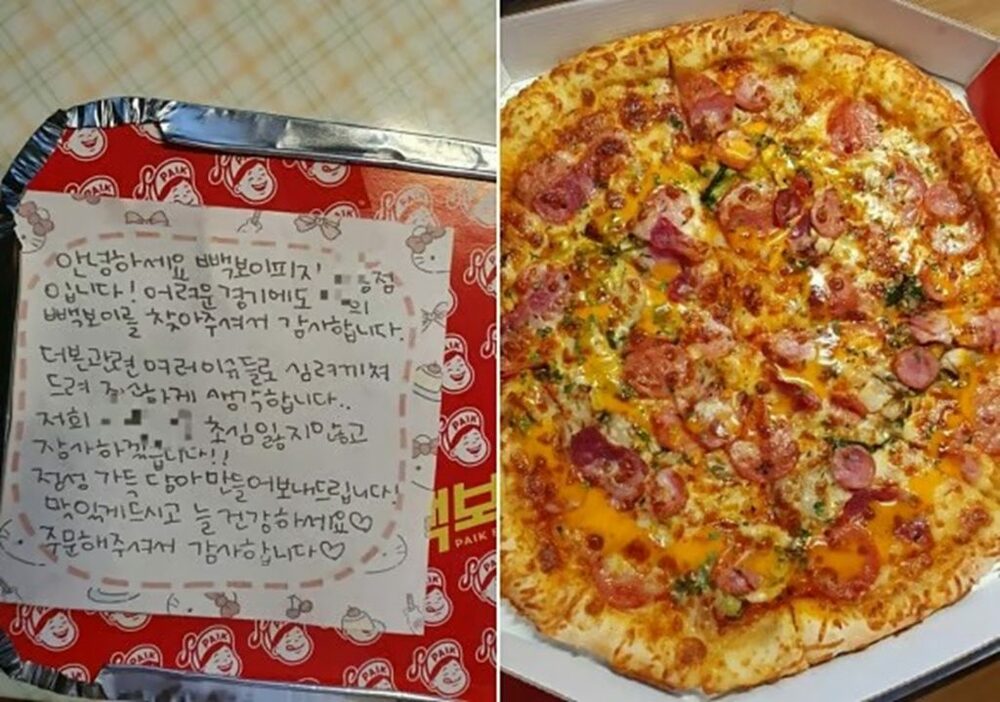 안녕하세요 빽보이피자 점
입니다! 어려운 경기에도 의
빽보이를 찾아주셔서 감사합니다.
더본관련 여러이슈들로 심려끼쳐
드려 죄송하게 생각합니다..
저희 초심 잃지않고
장사하겠습니다!!
정성 가득 담아 만들어보내드립니다!
맛있게드시고 늘 건강하세요♡
주문해주셔서 감사합니다♡
PAIK
PAIK
PAIK
PAIK
PAIK
PAIK